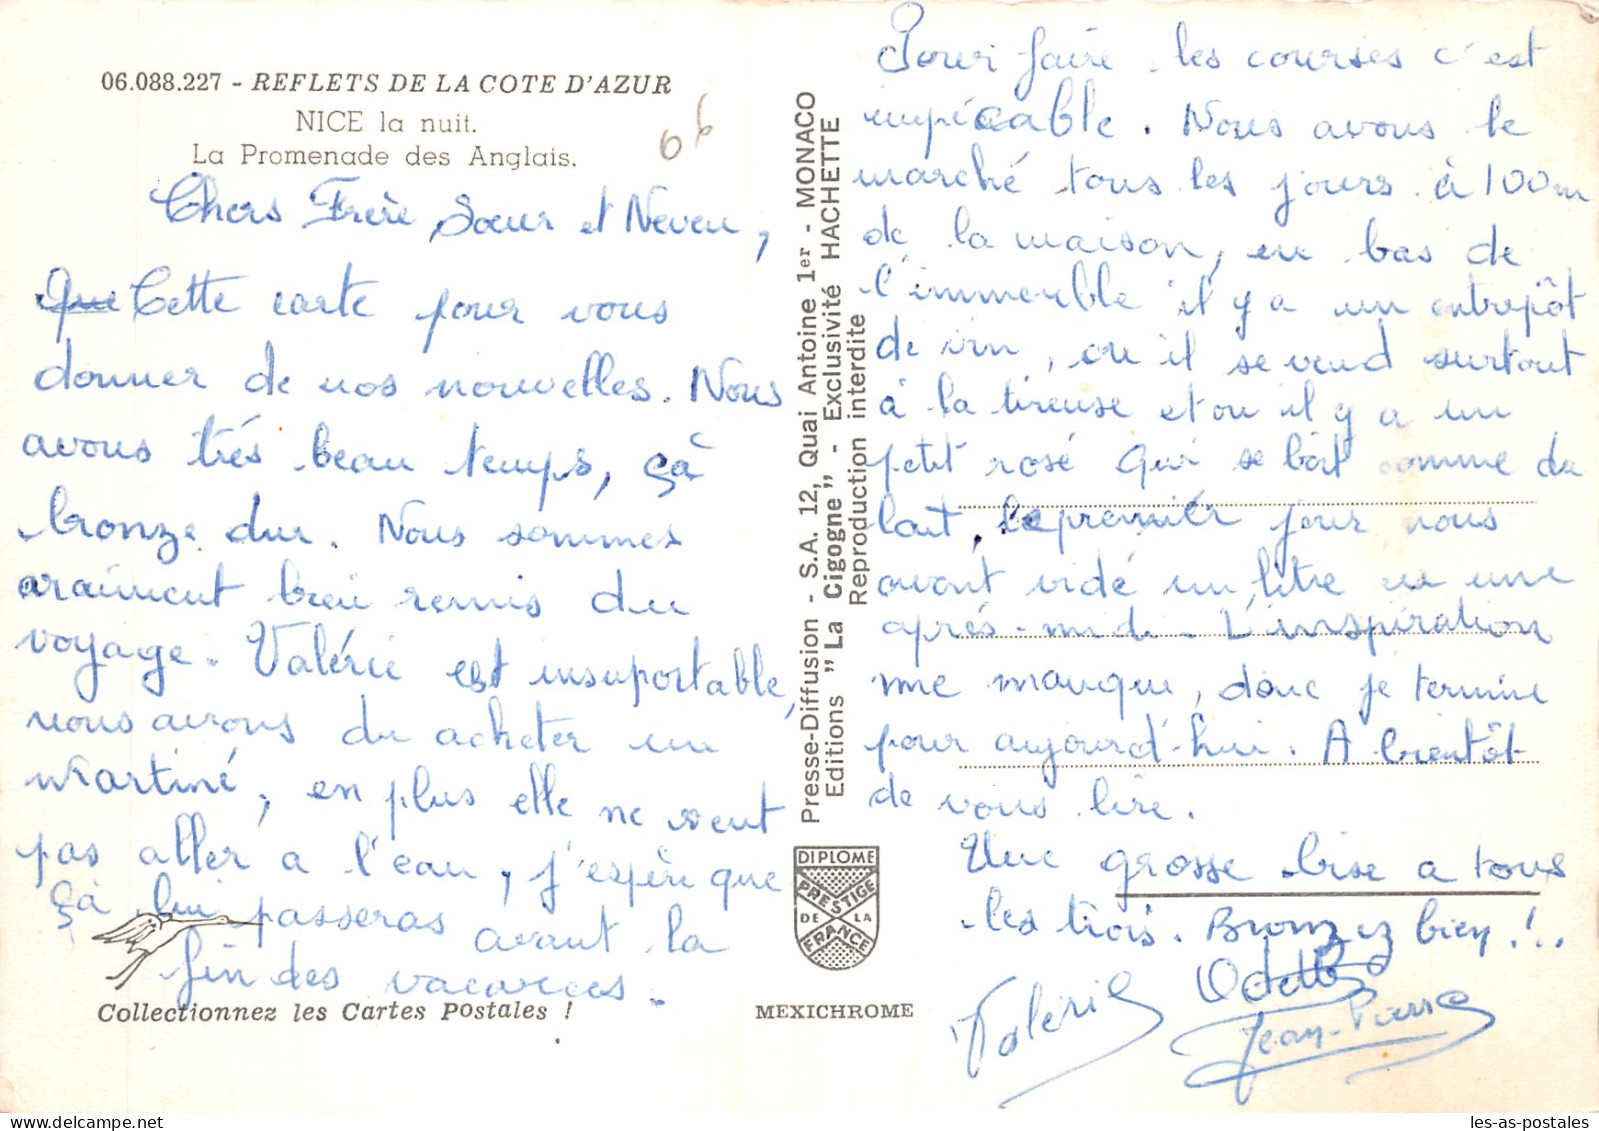 06.088.227 - REFLETS DE LA COTE D'AZUR
NICE la nuit.
La Promenade des Anglais.
06
Chers Frère, Sœur et Neveu,
Que Cette carte pour vous
donner de nos nouvelles. Nous
avons trés beau temps, çà
bronze dur. Nous sommes
vraiment bien remis du
voyage. Valérie est insuportable,
nous avons du acheter un
Martiné, en plus elle ne veut
pas aller a l'eau, j'espère que
çà lui passeras avant la
fin des vacances.
Collectionnez les Cartes Postales !
Presse-Diffusion - S.A. 12, Quai Antoine 1er - MONACO
Editions "La Cigogne" - Exclusivité HACHETTE
Reproduction interdite
DIPLOME
PRESTIGE
DE LA
FRANCE
MEXICHROME
Pour faire les courses c'est
impécable. Nous avons le
marché tous les jours à 100m
de la maison, en bas de
l'immeuble il y a un entrepôt
de vin, ou il se vend surtout
à la tireuse et ou il y a un
petit rosé qui se boit comme du
lait, le premier jour nous
avont vidé un litre en une
après-midi. L'inspiration
me manque, donc je termine
pour aujourd'hui. A bientôt
de vous lire.
Une grosse bise a tous
les trois. Bronzez bien !..
Valérie Odette
Jean-Pierre
les-as-postales